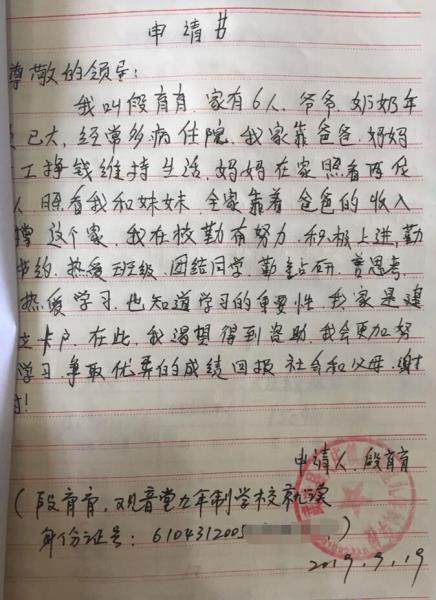 申请书
尊敬的领导：
我叫段育育，家有6人，爷爷、奶奶年
已大，经常多病住院，我家靠爸爸、妈妈
工挣钱维持生活，妈妈在家照看两位
人，照看我和妹妹，全家靠着爸爸的收入
撑这个家，我在校勤有努力，积极上进，勤
节约，热爱班级，团结同学，勤钻研，善思考，
热爱学习，也知道学习的重要性，我家是建
立卡户，在此，我渴望得到资助，我会更加努
学习争取优异的成绩回报社会和父母，谢
！
申请人：段育育
（段育育，观音堂九年制学校就读
身份证号：6104312005 ）
2019.9.19